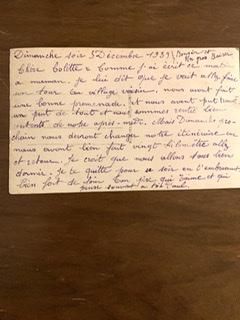 Dimanche soir 3 Décembre 1939
Chère Colette = Comme j'ai écrit ce matin
a maman. je lui dit que je vait allez faire
un tour au village voisin, nous avont fait
une bonne promenade. et nous avont put
un peut de tout et nous sommes rentré bien
contents de notre après-midi. Mais Dimanche pro-
chain nous devront changer notre itinéraire en
nous avont bien fait vingt kilomètre allez
et retour. Je croit que nous allons tous bien
dormir. Je te quitte pour ce soir en t'embrassant
bien fort de loin. Ton père qui t'aime et qui
pense souvent a toi